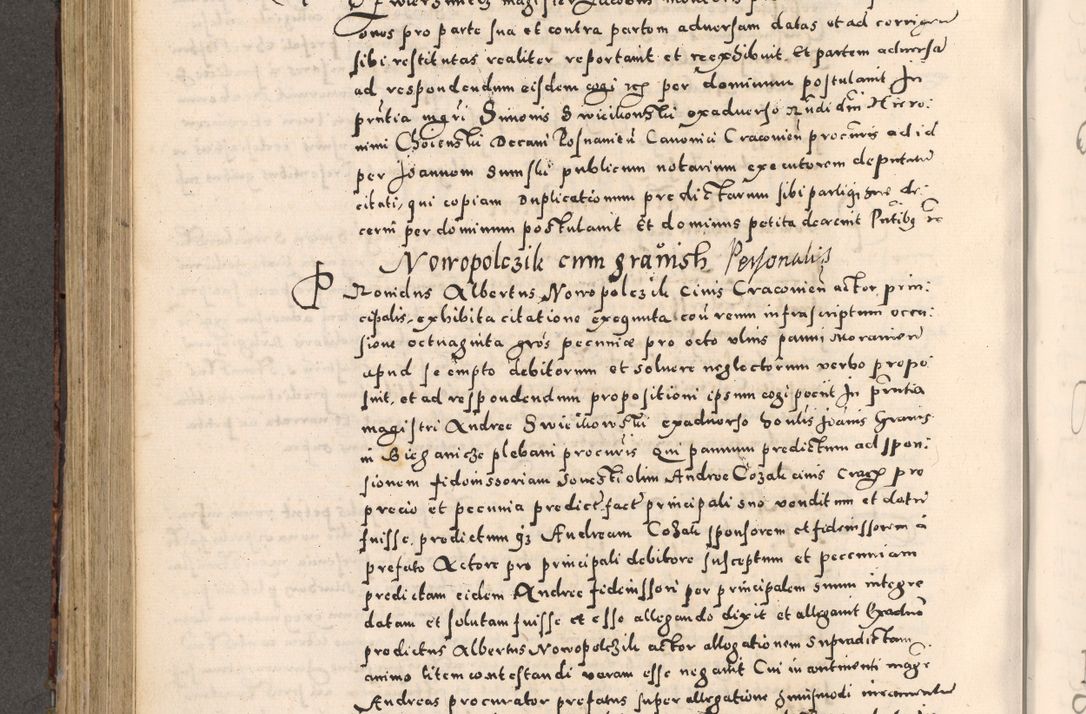 onus pro parte sua et contra partem adversam datas et ad corrigen
sibi restitutas realiter reportavit et reexhibuit Et partem adversa
ad respondendum eisdem cogi etc per dominum postulavit In
pn̄tia mgri Simonis Swiciconski exadverso Rn̄di dn̄i Hiero:
nimi Choienski Decani Posnanien̄ Canonici Cracovien̄ procuris ad id
per Joannem Sumski publicum notarium executorem deputatū
citati, qui copiam Duplicationum predictarum sibi parti q; sue de:
cerni per dominum postulavit Et dominus petita decrevit Pn̄tibq etc
Nowopolczik cum Gravish Personalis
Providus Albertus Nowopolczik Civis Cracovien̄ actor prin:
cipalis, exhibita citatione exequuta contra reum infrascriptum occa:
sione octuaginta gros pecuniæ pro octo ulnis panni Moraviore
apud se empto debitorum et solvere neglectorum verbo propo
suit, et ad respondendum propositioni ipsum cogi petiit In pn̄tia
magistri Andree Swicikowski exadverso honlis Joānis Gravis
in Biezanicze plebani procuris Qui pannum predictum ad spon:
sionem fideiussoriam honesti olim Andree Cozak civis Crac pro
precio et pecunia predict fact principali suo venditum et datū
fuisse, predictum q; Andream Cozak sponsorem et fideiussorem a
prefato Actore pro principali debitore susceptum et pecuniam
predictam eidem Andree fideiussori per principalem suum integre
datam et solutam fuisse et esse allegando dixit et allegavit Exadverso
predictus Albertus Nowopolczik actor allegationem supradictam
animo litem contestandi veram esse negavit Cui in continenti mage
Andreas procurator prefatus super allegatione huiusmodi